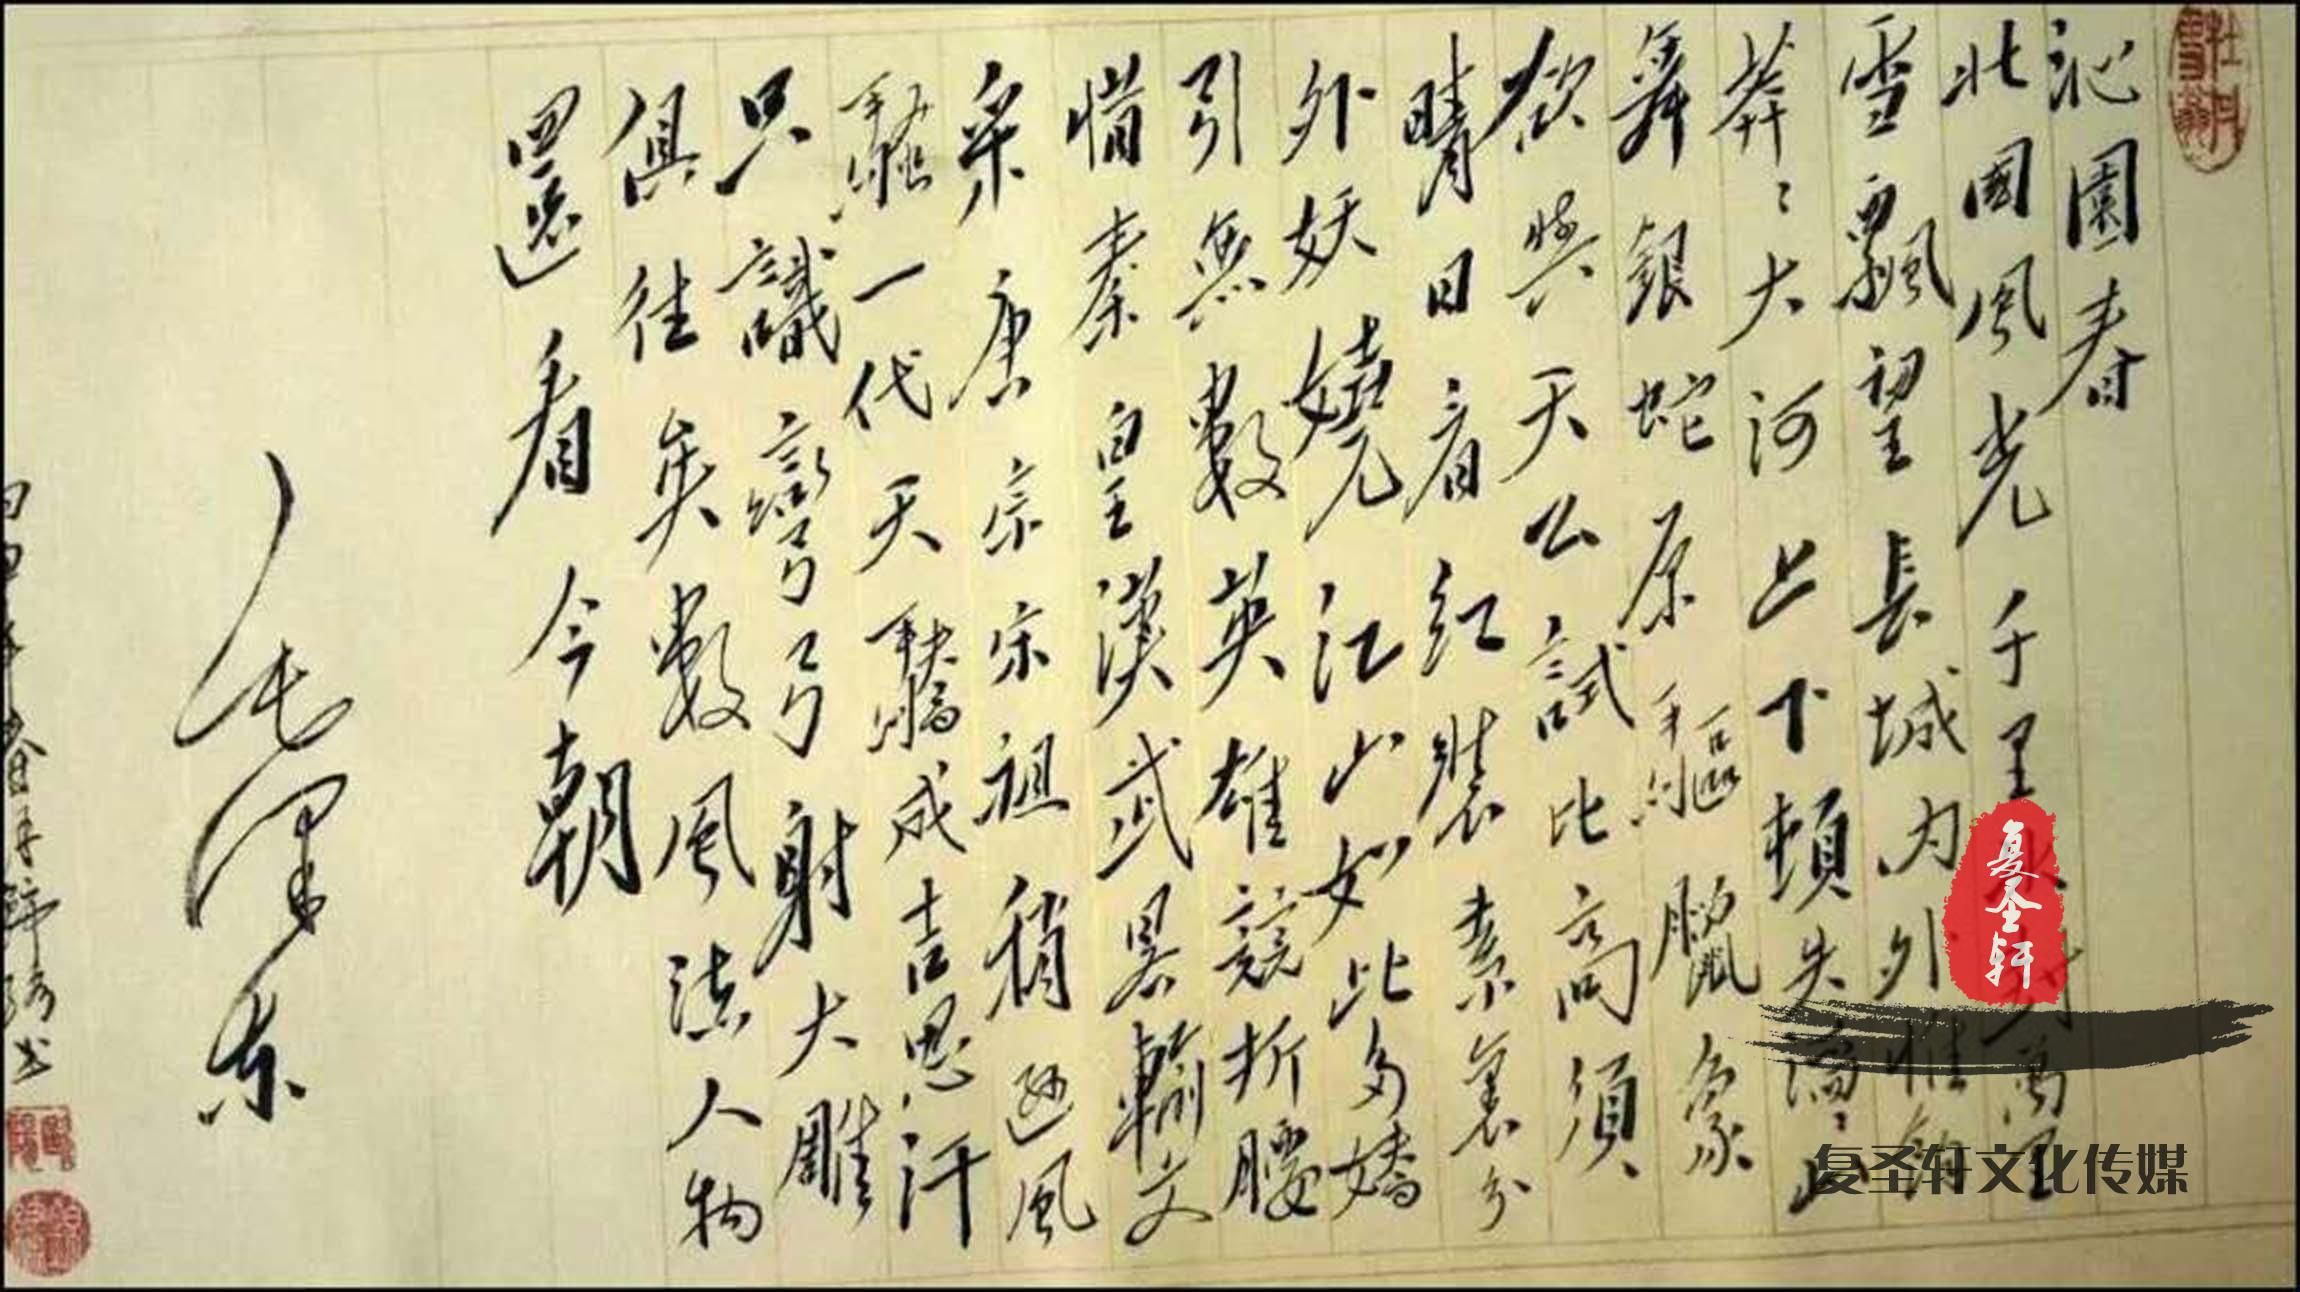 沁園春
北國風光千里冰封萬里
雪飄望長城内外惟餘
莽〻大河上下頓失滔〻山
舞銀蛇原驅臘象
欲與天公試比高須
晴日看紅裝素裹分
外妖嬈江山如此多嬌
引無數英雄競折腰
惜秦皇漢武畧輸文
采唐宗宋祖稍遜風
騷一代天驕成吉思汗
只識彎弓射大雕
俱往矣數風流人物
還看今朝
毛澤东
复圣轩
复圣轩文化传媒